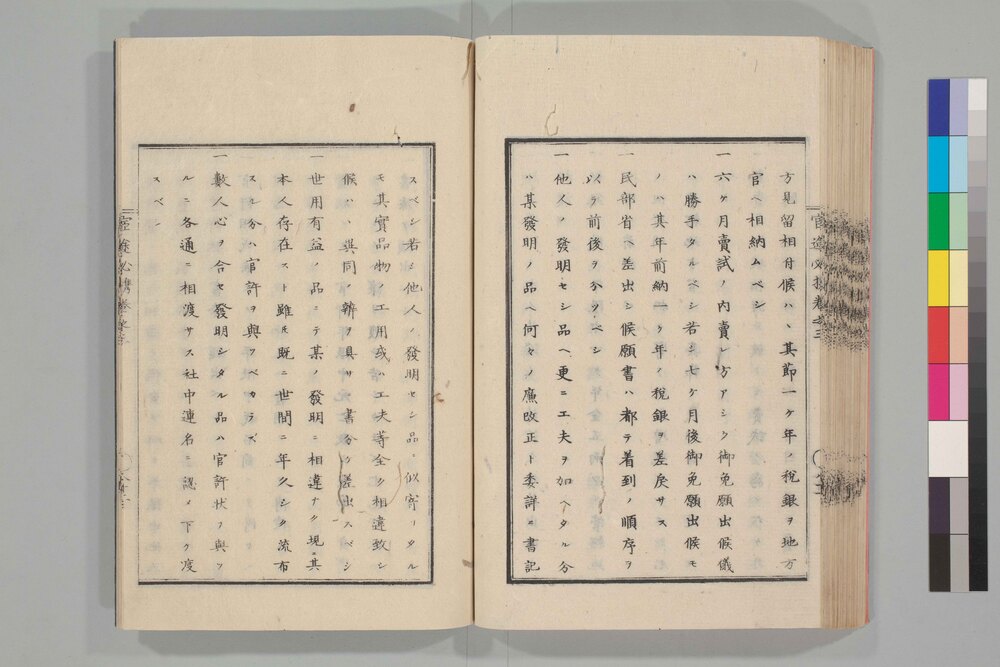 方見留相付候ハヽ其節一ケ年ノ税銀ヲ地方
官ヘ相納ムベシ
一六ケ月賣試ノ内賣レ方アシク御免願出候儀
ハ勝手タルベシ若シ七ケ月後御免願出候モ
ノハ其年前納一ケ年ノ税銀ヲ差戻サス
一民部省ヘ差出シ候願書ハ都テ着到ノ順序ヲ
以テ前後ヲ分ツベシ
一他人ノ發明セシ品ヘ更ニ工夫ヲ加ヘタル分
ハ某發明ノ品ヘ何々ノ廉改正ト委詳ニ書記
スベシ若シ他人ノ發明セシ品ニ似寄リタル
モ其實品物ノ工用或ハ工夫等全ク相違致シ
候ハヽ異同ノ辨ヲ具サニ書分ケ差出スベシ
一世用有益ノ品ニテ某ノ發明ニ相違ナク現ニ其
本人存在スト雖𪜈既ニ世間ニ年久シク流布
スル分ハ官許ヲ與フベカラズ
一數人心ヲ合セ發明シタル品ハ官許状ヲ與フ
ルニ各通ニ相渡サス社中連名ニ認メ下ケ渡
スベシ